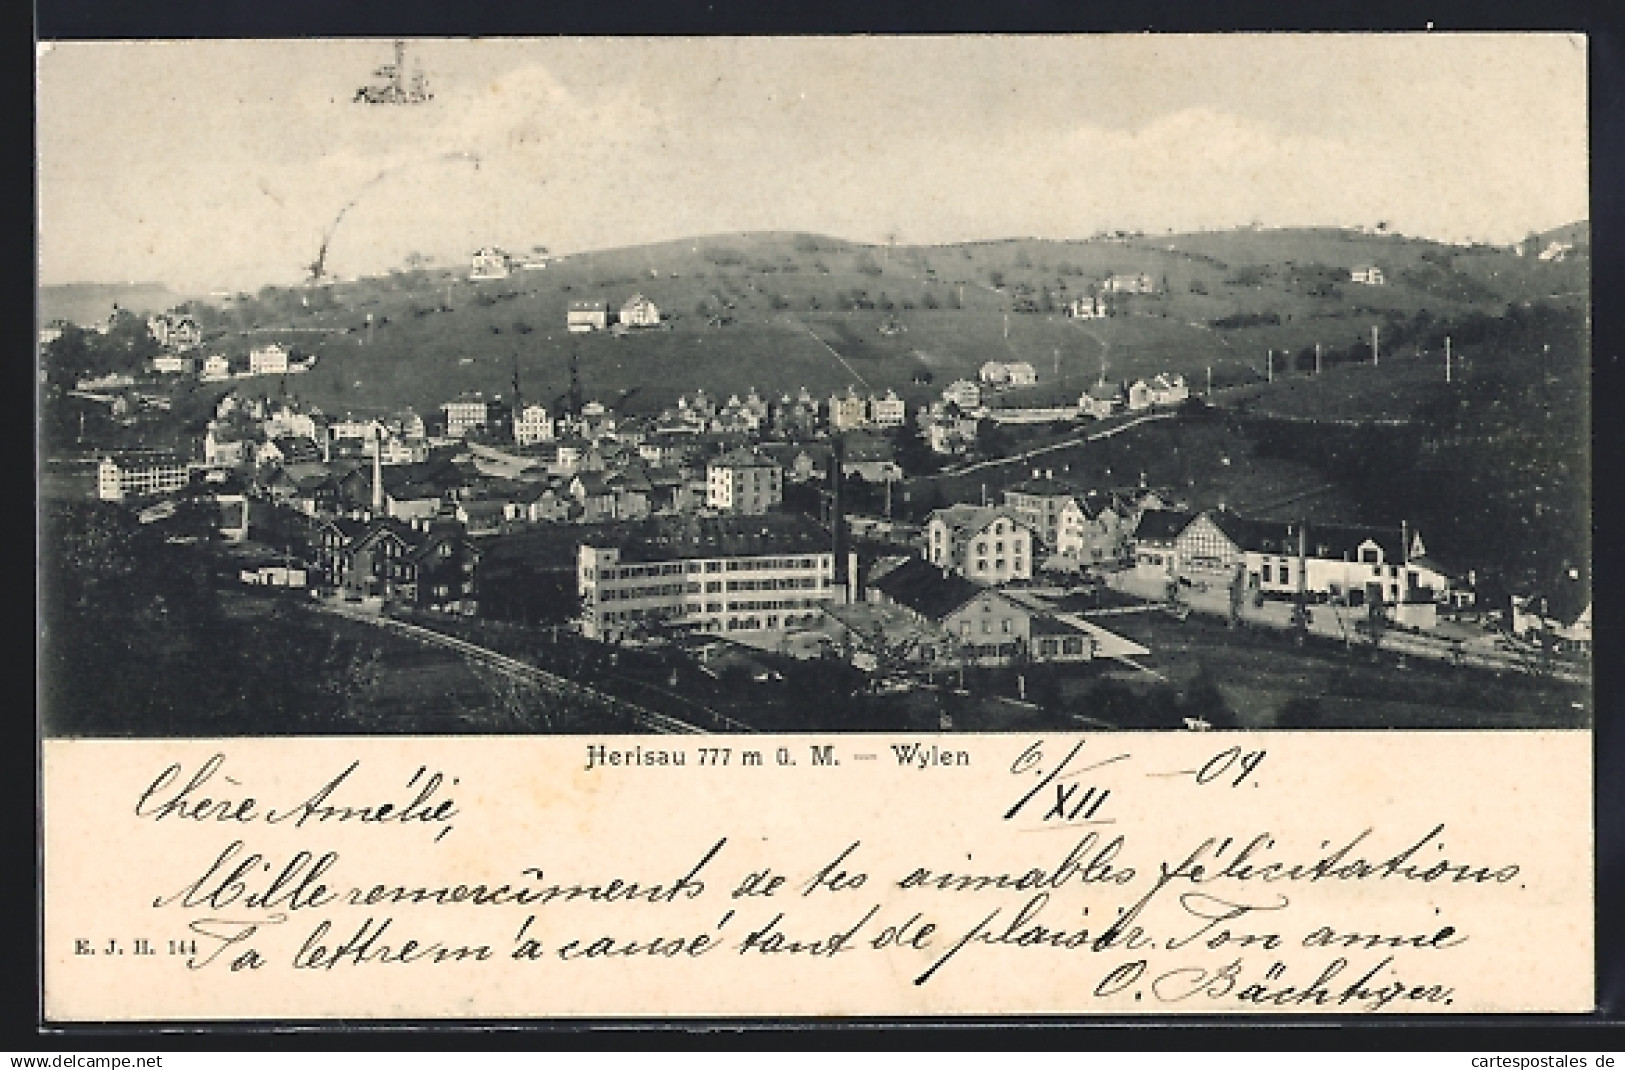 Herisau 777 m ü. M. — Wylen
6./XII -09.
Chère Amélie,
Mille remercîments de tes aimables félicitations.
E. J. H. 144
Ta lettre m'a causé tant de plaisir. Ton amie
O. Bächtiger.
www.delcampe.net
cartespostales de